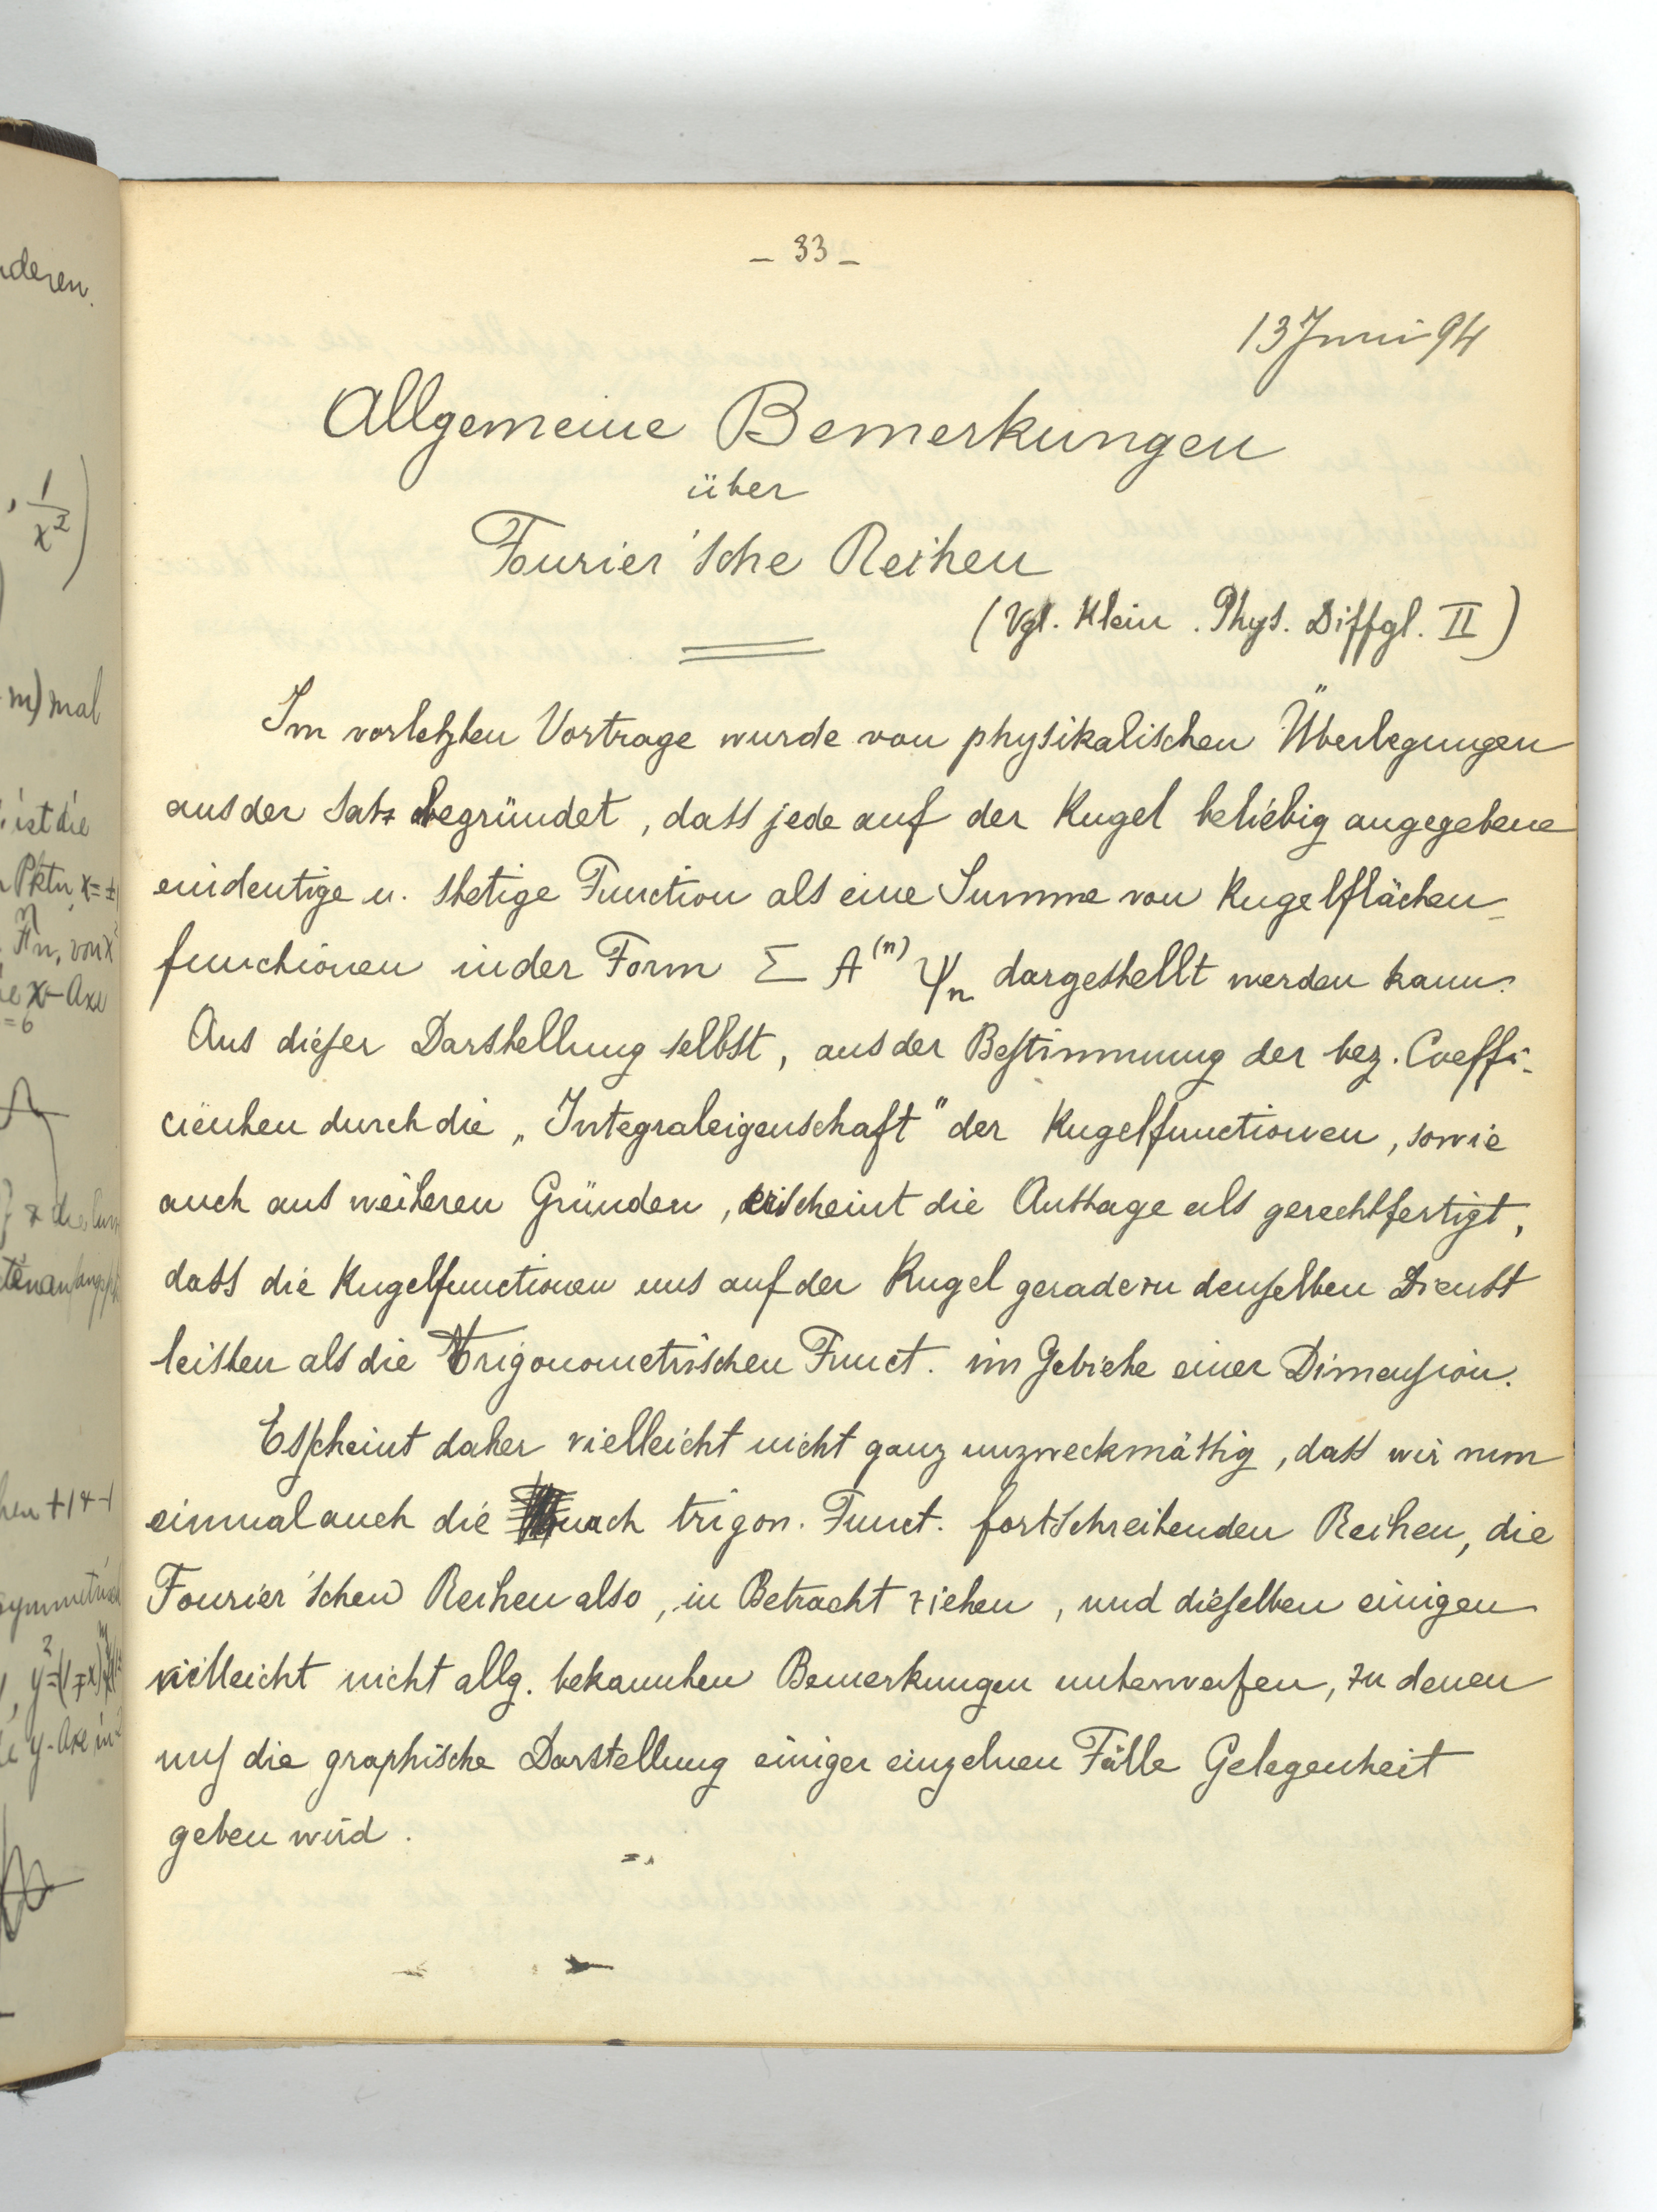 nderen.
, 1/x²)
m) mal
ist die
Pktn x = ±
x-Axe
hen +1 & -1
symmetrisch
y-Axe in
– 33 –
13 Juni 94
Allgemeine Bemerkungen
über
Fourier'sche Reihen
(Vgl. Klein. Phys. Diffgl. II)
Im vorletzten Vortrage wurde von physikalischen Überlegungen
aus der Satz begründet, dass jede auf der Kugel beliebig angegebene
eindeutige u. stetige Function als eine Summe von Kugelflächen-
functionen in der Form Σ A⁽ⁿ⁾ ψₙ dargestellt werden kann.
Aus dieser Darstellung selbst, aus der Bestimmung der bez. Coeffi-
cienten durch die „Integraleigenschaft" der Kugelfunctionen, sowie
auch aus weiteren Gründen, erscheint die Aussage als gerechtfertigt,
dass die Kugelfunctionen uns auf der Kugel geradezu denselben Dienst
leisten als die Trigonometrischen Funct. im Gebiete einer Dimension.
Es scheint daher vielleicht nicht ganz unzweckmässig, dass wir nun
einmal auch die nach trigon. Funct. fortschreitenden Reihen, die
Fourier'schen Reihen also, in Betracht ziehen, und dieselben einigen
vielleicht nicht allg. bekannten Bemerkungen unterwerfen, zu denen
uns die graphische Darstellung einiger einzelnen Fälle Gelegenheit
geben wird.